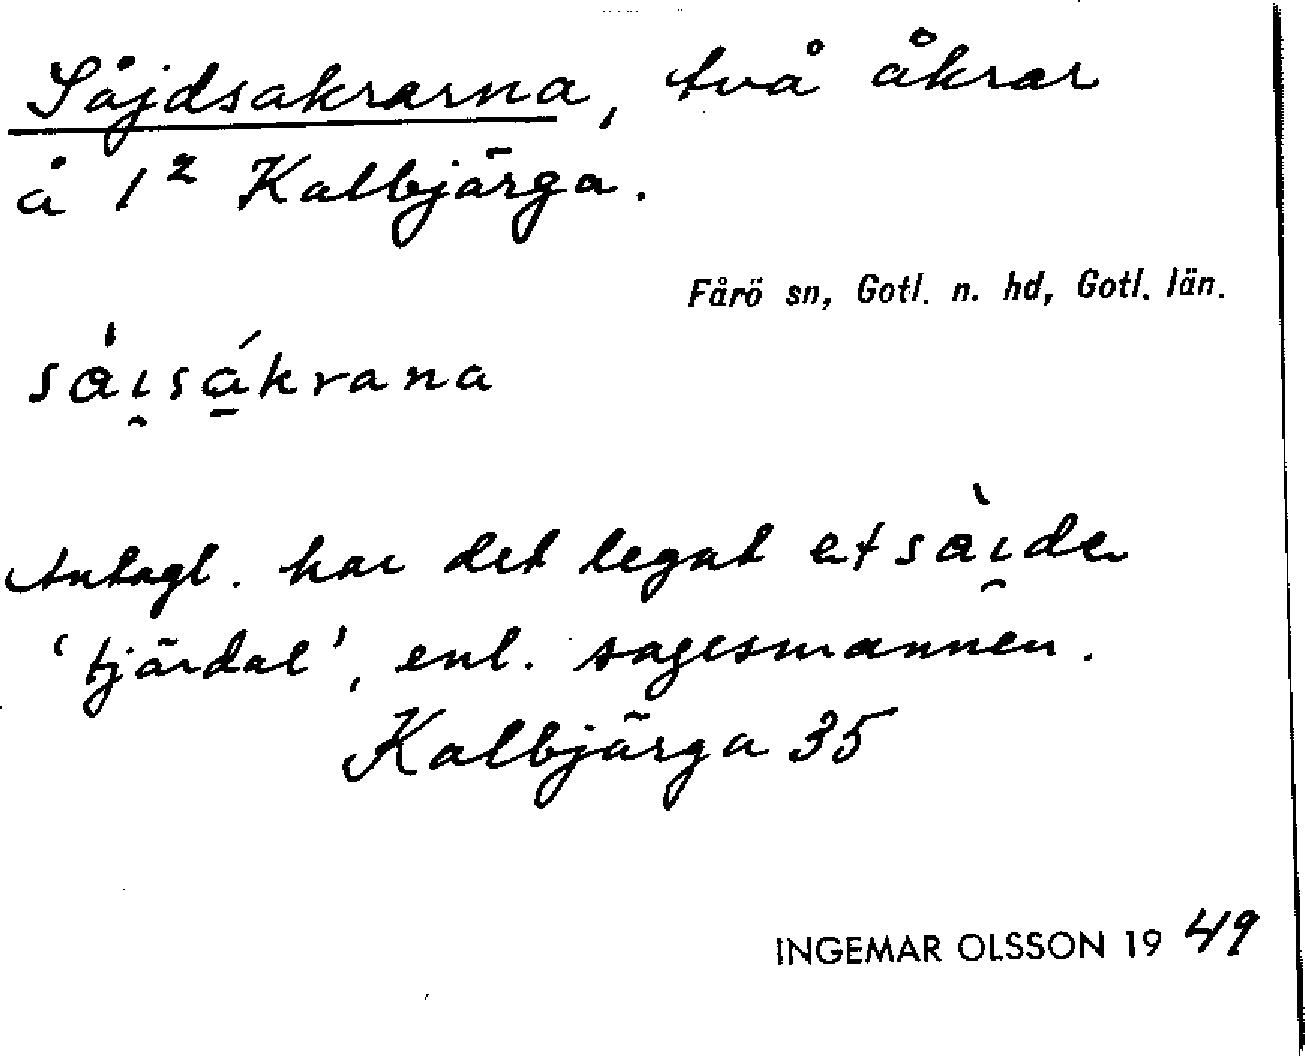 Såjdsakrarna, två åkrar
å 1² Kalbjärga.
Fårö sn, Gotl. n. hd, Gotl. län.
såi̯sákrana
Antagl. har det legat et sài̯de
'tjärdal', enl. sagesmannen.
Kalbjärga 35
INGEMAR OLSSON 19 49